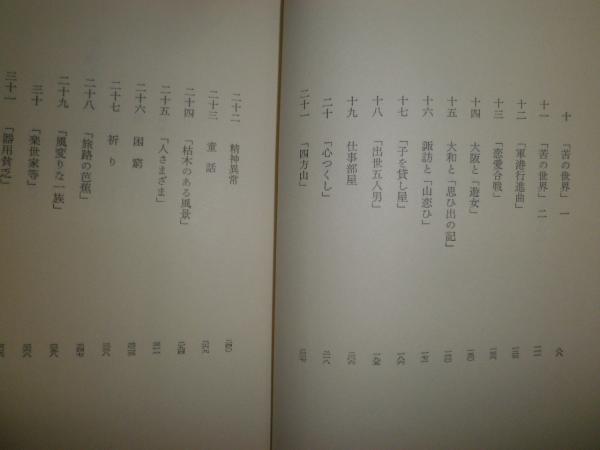 十 「苦の世界」 一
十一 「苦の世界」 二
十二 「軍港行進曲」
十三 「恋愛合戦」
十四 大阪と「遊女」
十五 大和と「思ひ出の記」
十六 諏訪と「山恋ひ」
十七 「子を貸し屋」
十八 「出世五人男」
十九 仕事部屋
二十 「心つくし」
二十一 「四方山」
二十二 精神異常
二十三 童話
二十四 「枯木のある風景」
二十五 「人さまざま」
二十六 困窮
二十七 祈り
二十八 「旅路の芭蕉」
二十九 「風変りな一族」
三十 「楽世家等」
三十一 「器用貧乏」